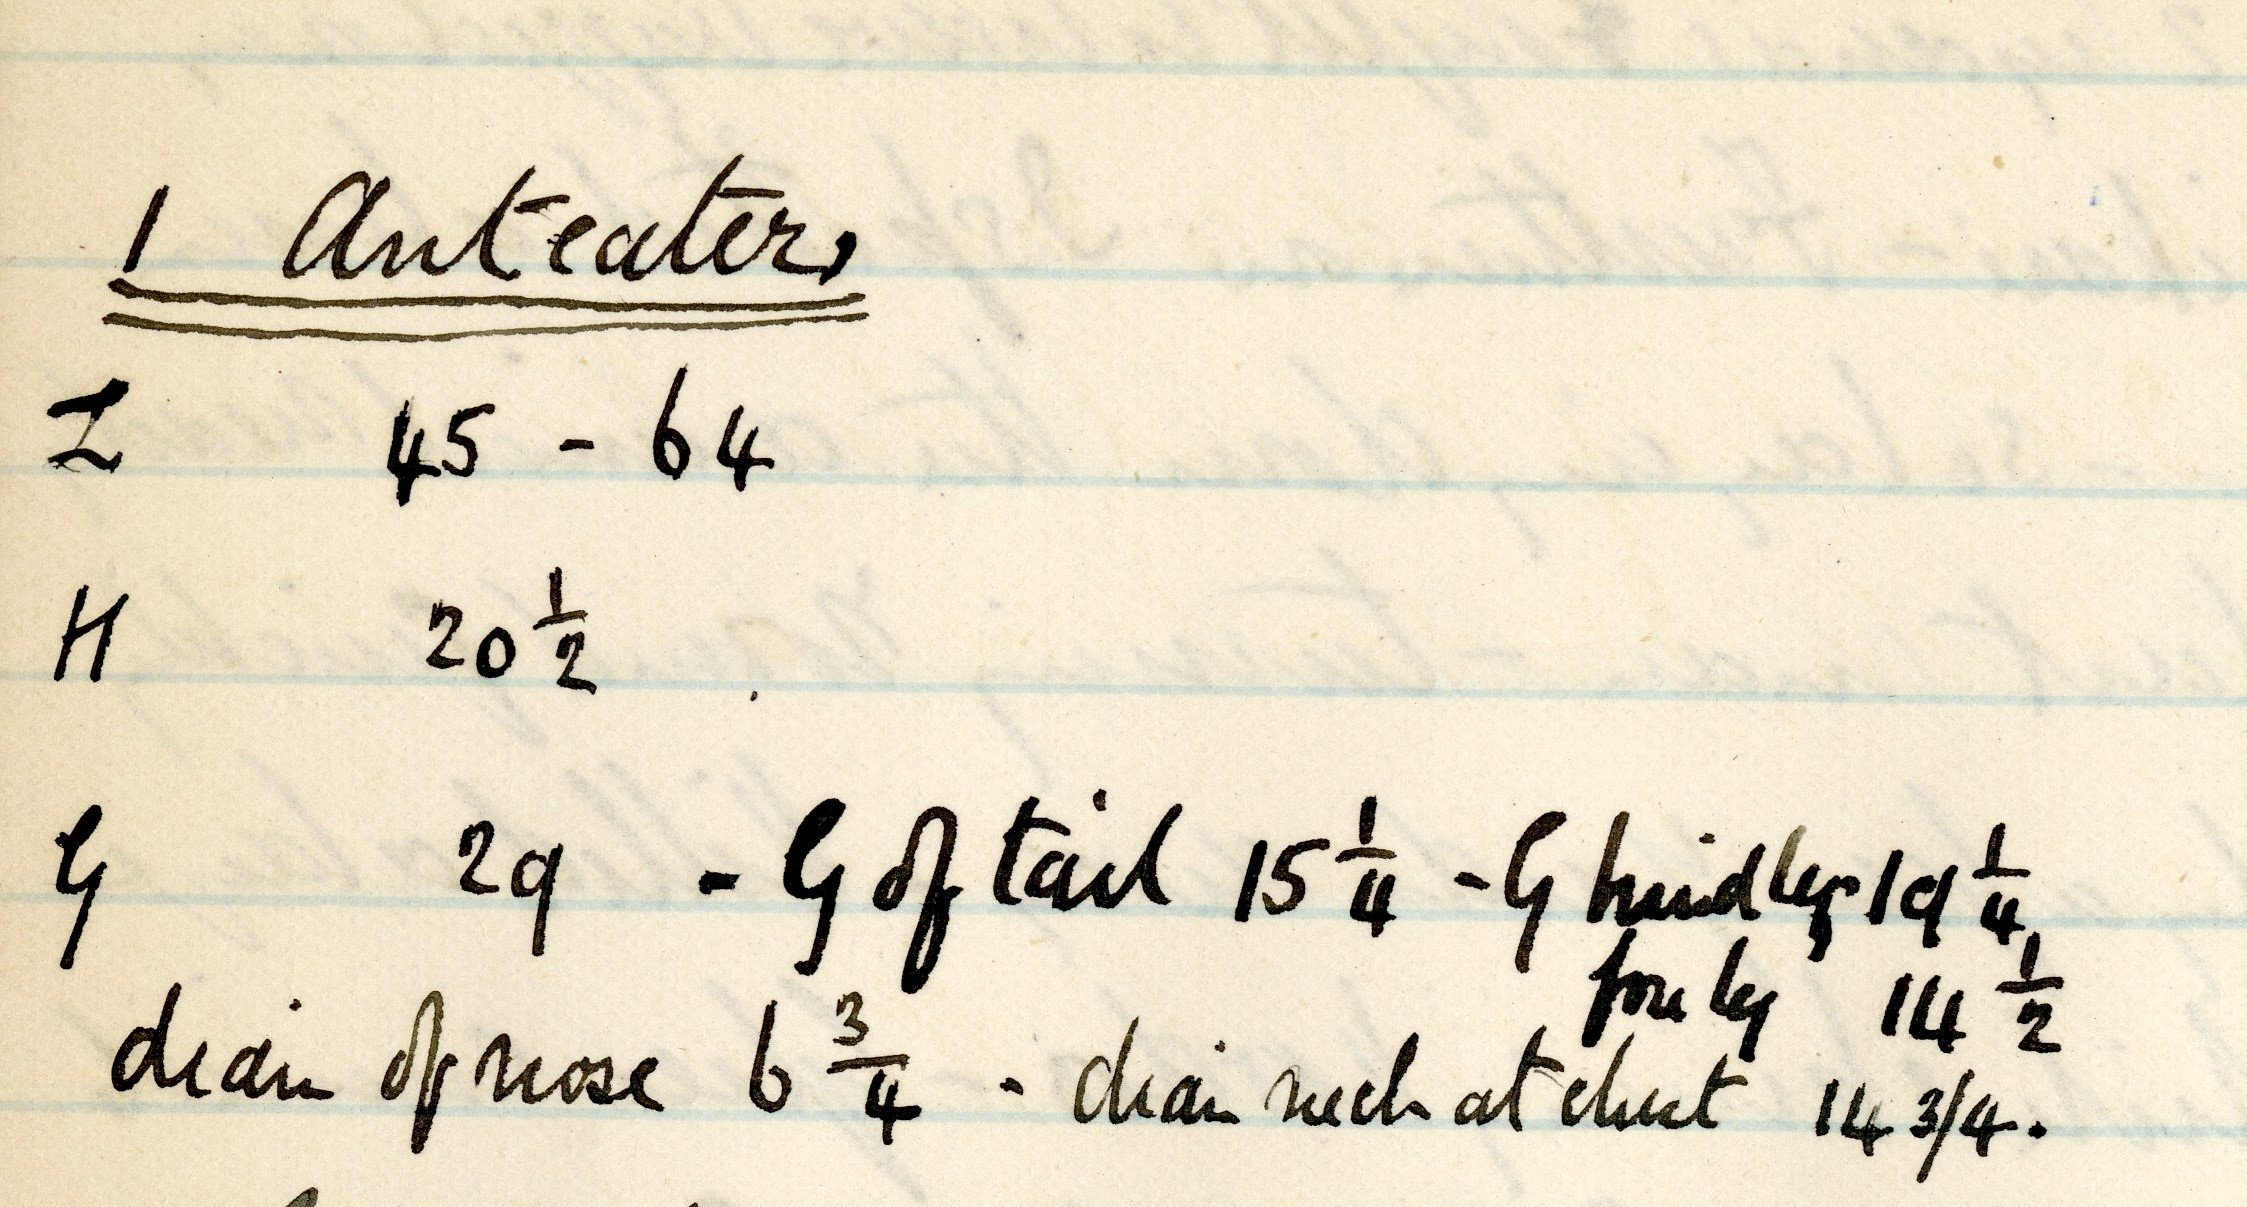 1 Anteater,
L 45 - 64
H 20 1/2
G 29 - G of tail 15 1/4 - G hind leg 19 1/4
fore leg 14 1/2
diam of nose 6 3/4 - diam neck at chest 14 3/4.